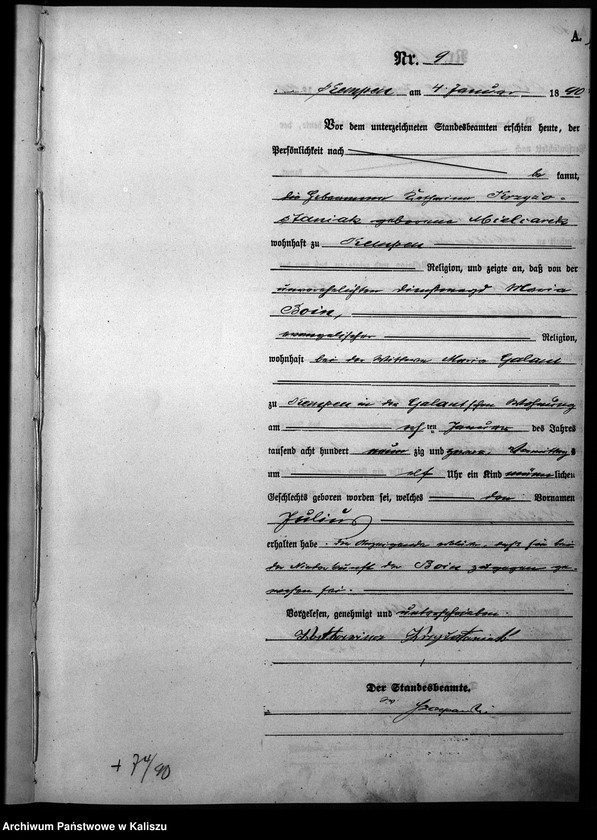 A.
Nr. 9
Kempen am 4. Januar 1890
Vor dem unterzeichneten Standesbeamten erschien heute, der
Persönlichkeit nach
be kannt,
die Hebeamme Katharina Krzyżo-
staniak geborene Mielcarek
wohnhaft zu Kempen
Religion, und zeigte an, daß von der
unverehelichten Dienstmagd Maria
Boin,
evangelischer Religion,
wohnhaft bei der Wittwe Maria Galant
zu Kempen in der Galant'schen Wohnung
am ten Januar des Jahres
tausend acht hundert neun zig und Vormittags
um elf Uhr ein Kind männlichen
Geschlechts geboren worden sei, welches den Vornamen
Julius
erhalten habe. Die Anzeigende erklärt, daß sie bei
der Niederkunft der Boin zugegen ge-
wesen sei.
Vorgelesen, genehmigt und unterschrieben
Katharina
Der Standesbeamte.
+ 74/90
Archiwum Państwowe w Kaliszu